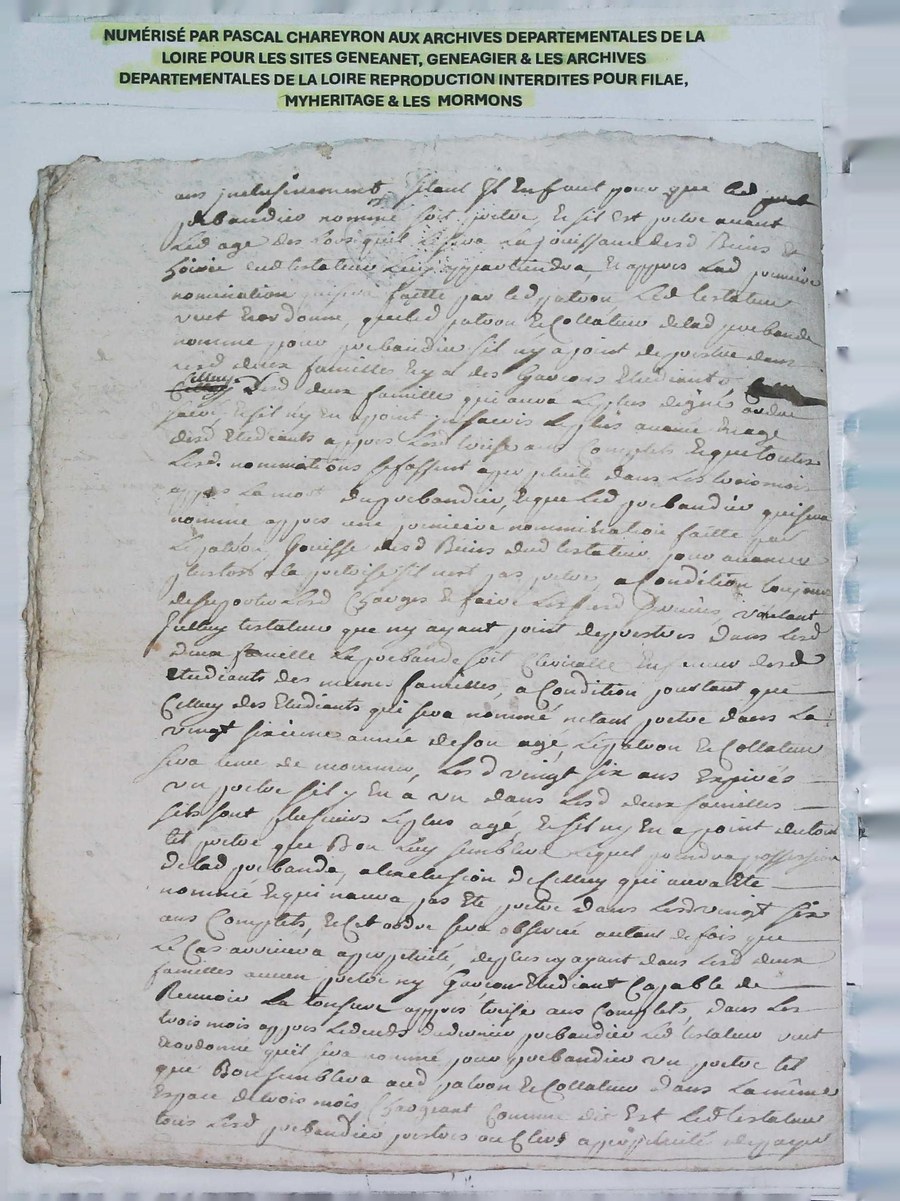 NUMÉRISÉ PAR PASCAL CHAREYRON AUX ARCHIVES DEPARTEMENTALES DE LA
LOIRE POUR LES SITES GENEANET, GENEAGIER & LES ARCHIVES
DEPARTEMENTALES DE LA LOIRE REPRODUCTION INTERDITES POUR FILAE,
MYHERITAGE & LES MORMONS
ans inclusivement Enfant pour que led
prebandier nommé soit pretre, Et sil est pretre avant
Led age des Lors quil Lesera La jouissance desd Biens
hoirie dud testateur Luy appartiendra Et appres Lad premiere
nomination qui sera faitte par led patron Led testateur
veut Et ordonne, que led patron Et Collateur de lad prebande
nomme pour prebandier sil ny a point de pretre dans
desd deux familles Et y a des Garçons Etudiants
Celluy desd deux familles qui aura Le plus de
Et sil ny En a point Le plus avancé En age
desd Etudiants appres Lesd treise ans Complets Et que toutes
Lesd nominations se fassent a perpetuité dans Les trois mois
appres La mort du prebandier, Et que Led prebandier qui sera
nommé appres une premiere nomination faitte par
Le patron, Jouisse desd Biens dud testateur pour avancer
plustost a la pretrise sil nest pas pretre, a Condition toujours
de suporter Lesd Charges Et faire Lesd services voulant
Jcelluy testateur que ny ayant point de pretres dans Lesd
deux famille La prebande soit Clericalle En faveur desd
Etudiants des memes familles, a Condition pourtant que
Celluy des Etudiants qui sera nommé netant pretre dans La
vingt sixieme année de son agé, Le patron Et Collateur
sera tenu de nommer, Lesd vingt six ans Expirés
un pretre sil y En a un dans Lesd deux familles
sils sont plusieurs Le plus agé, Et sil ny En a point du tout
tel pretre que Bon Luy semblera Lequel prendra possession
de lad prebande, a lexclusion de Celluy qui aura Eté
nommé Et qui naura pas Eté pretre dans Lesd vingt six
ans Complets, Et Cet ordre sera observé autant de fois que
Le Cas arrivera a perpetuité, de plus ny ayant dans Lesd deux
familles aucun pretre ny Garçon Etudiant Capable de
Recevoir La tonsure appres treise ans Complets, dans Les
trois mois appres Le deceds du dernier prebandier Led testateur veut
Et ordonne quil sera nommé pour prebandier un pretre tel
que Bon semblera aud patron Et Collateur dans La même
Espace de trois mois, Chargeant Comme dit Est Led testateur
tous Lesd prebandiers pretres ou Clers a perpetuité de payer